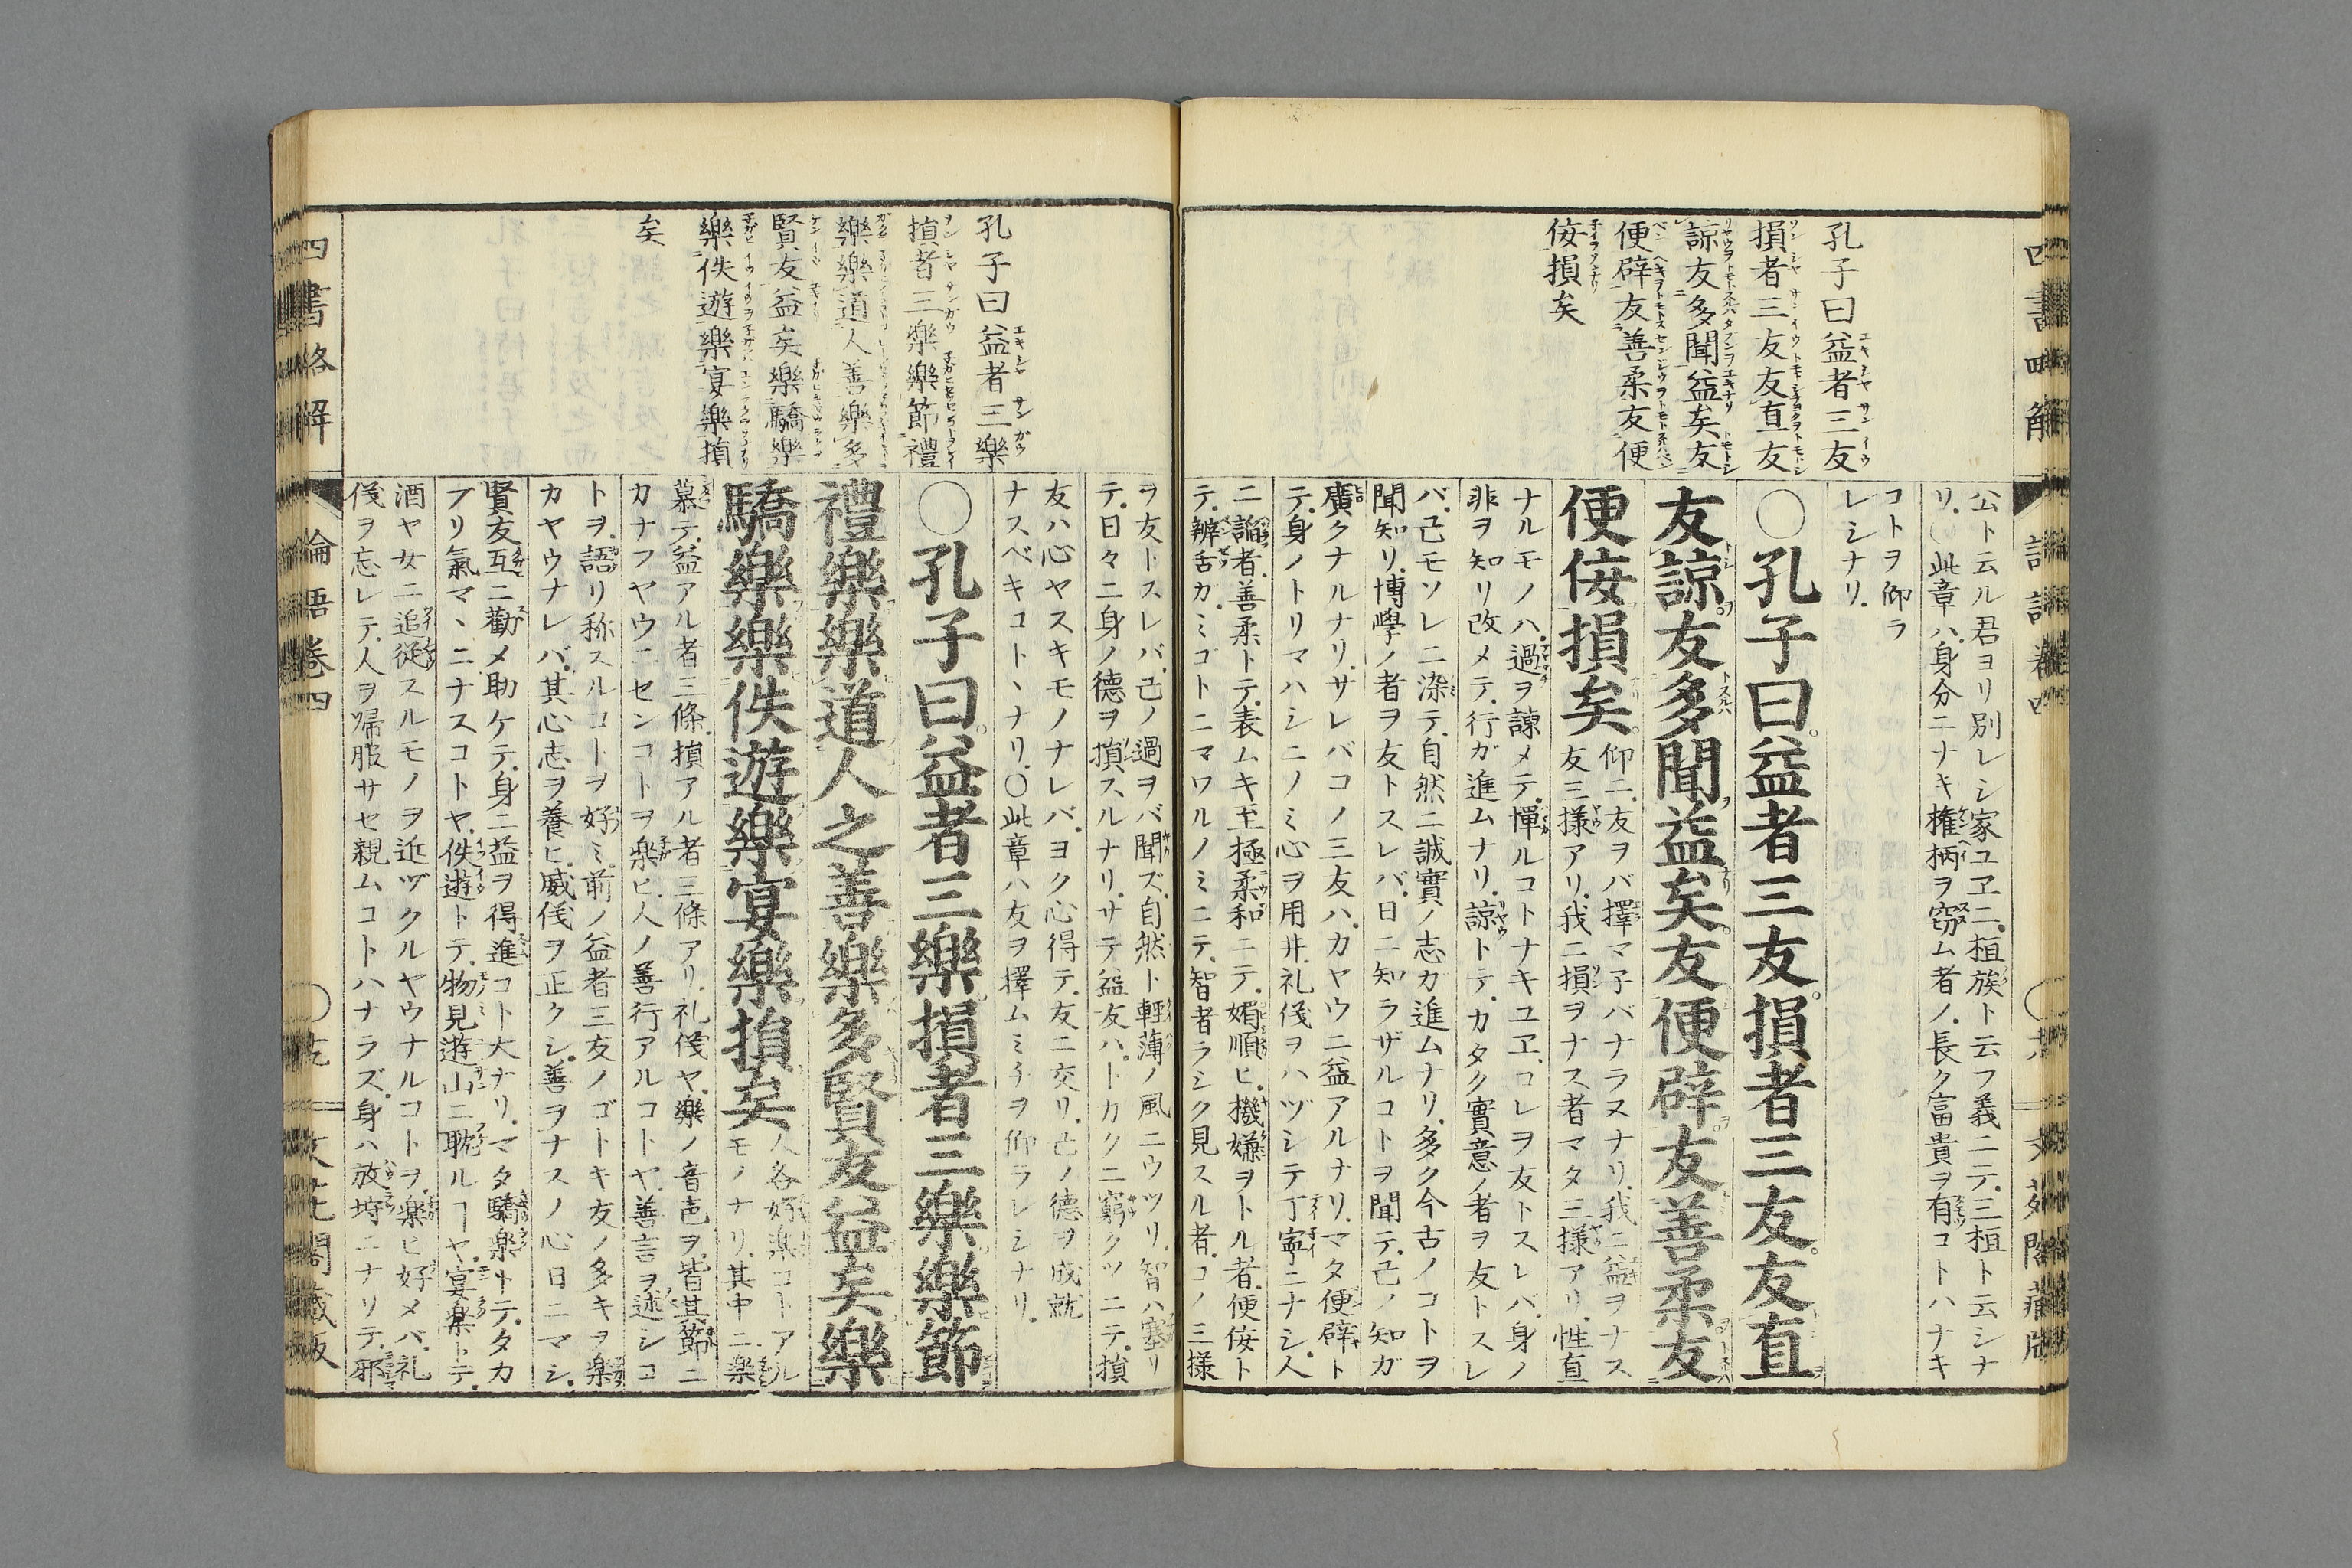 孔子曰益者三友
損者三友友直友
諒友多聞益矣友
便辟友善柔友便
佞損矣
公ト云ル君ヨリ別レシ家ユヱニ桓族ト云フ義ニテ三桓ト云シナ
リ○此章ハ身分ニナキ権柄ヲ窃ム者ノ長ク富貴ヲ有コトハナキ
コトヲ仰ラ
レシナリ
○孔子曰益者三友損者三友友直
友諒友多聞益矣友便辟友善柔友
便佞損矣
仰ニ友ヲバ擇マ子バナラヌナリ我ニ益ヲナス
友三様アリ我ニ損ヲナス者マタ三様アリ性直
ナルモノハ過ヲ諫メテ憚ルコトナキユヱコレヲ友トスレバ身ノ
非ヲ知リ改メテ行ガ進ムナリ諒トテカタク實意ノ者ヲ友トスレ
バ己モソレニ染テ自然ニ誠實ノ志ガ進ムナリ多ク今古ノコトヲ
聞知リ博學ノ者ヲ友トスレバ日ニ知ラザルコトヲ聞テ己ノ知ガ
廣クナルナリサレバコノ三友ハカヤウニ益アルナリマタ便辟ト
テ身ノトリマハシニノミ心ヲ用ヰ礼儀ヲハヅシテ丁寧ニナシ人
ニ謟者善柔トテ表ムキ至極柔和ニテ媚順ヒ機嫌ヲトル者便佞ト
テ辨舌ガミゴトニマワルノミニテ智者ラシク見スル者コノ三様
孔子曰益者三樂
損者三樂樂節禮
樂樂道人善樂多
賢友益矣樂驕樂
樂佚遊樂宴樂損
矣
ヲ友トスレバ己ノ過ヲバ聞ズ自然ト輕薄ノ風ニウツリ智ハ塞リ
テ日々ニ身ノ德ヲ損スルナリサテ益友ハトカクニ窮クツニテ損
友ハ心ヤスキモノナレバヨク心得テ友ニ交リ己ノ德ヲ成就
ナスベキコトヽナリ○此章ハ友ヲ擇ムミチヲ仰ラレシナリ
○孔子曰益者三樂損者三樂樂節
禮樂樂道人之善樂多賢友益矣樂
驕樂樂佚遊樂宴樂損矣
人各好楽コトアル
モノナリ其中ニ楽
慕テ益アル者三條損アル者三條アリ礼儀ヤ樂ノ音色ヲ皆其節ニ
カナフヤウニセンコトヲ楽ヒ人ノ善行アルコトヤ善言ヲ述シコ
トヲ語リ称スルコトヲ好ミ前ノ益者三友ノゴトキ友ノ多キヲ楽
カヤウナレバ其心志ヲ養ヒ威儀ヲ正クシ善ヲナスノ心日ニマシ
賢友互ニ勸メ助ケテ身ニ益ヲ得進コト大ナリマタ驕楽トテタカ
ブリ氣マヽニナスコトヤ佚遊トテ物見遊山ニ耽ルヿヤ宴楽トテ
酒ヤ女ニ追従スルモノヲ近ヅクルヤウナルコトヲ楽ヒ好メバ礼
儀ヲ忘レテ人ヲ帰服サセ親ムコトハナラズ身ハ放埒ニナリテ邪
四書略解
論語巻四